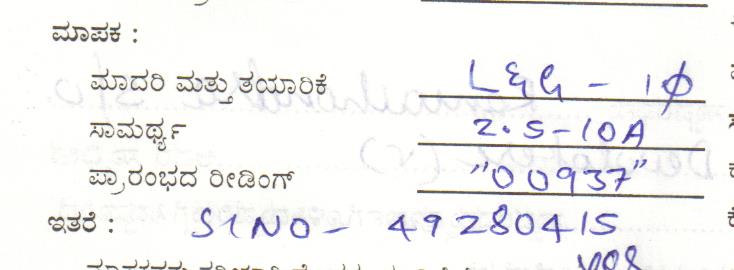 ಮಾಪಕ :
ಮಾದರಿ ಮತ್ತು ತಯಾರಿಕೆ L&G - 1φ
ಸಾಮರ್ಥ್ಯ 2.5-10A
ಪ್ರಾರಂಭದ ರೀಡಿಂಗ್ "00937"
ಇತರೆ : SLNO- 49280415